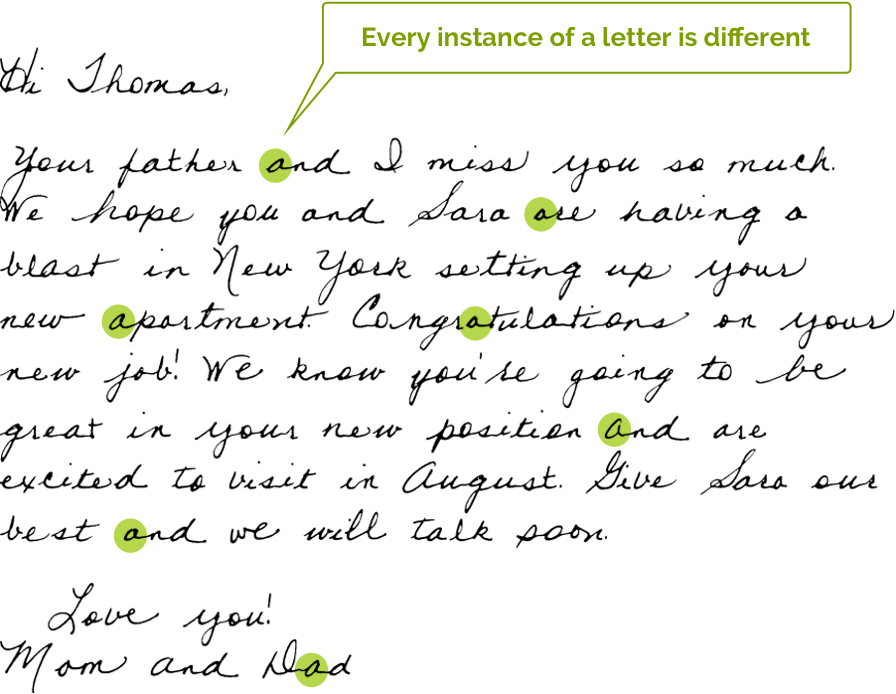 Every instance of a letter is different
Hi Thomas,
Your father and I miss you so much.
We hope you and Sara are having a
blast in New York setting up your
new apartment. Congratulations on your
new job! We know you're going to be
great in your new position and are
excited to visit in August. Give Sara our
best and we will talk soon.
Love you!
Mom and Dad